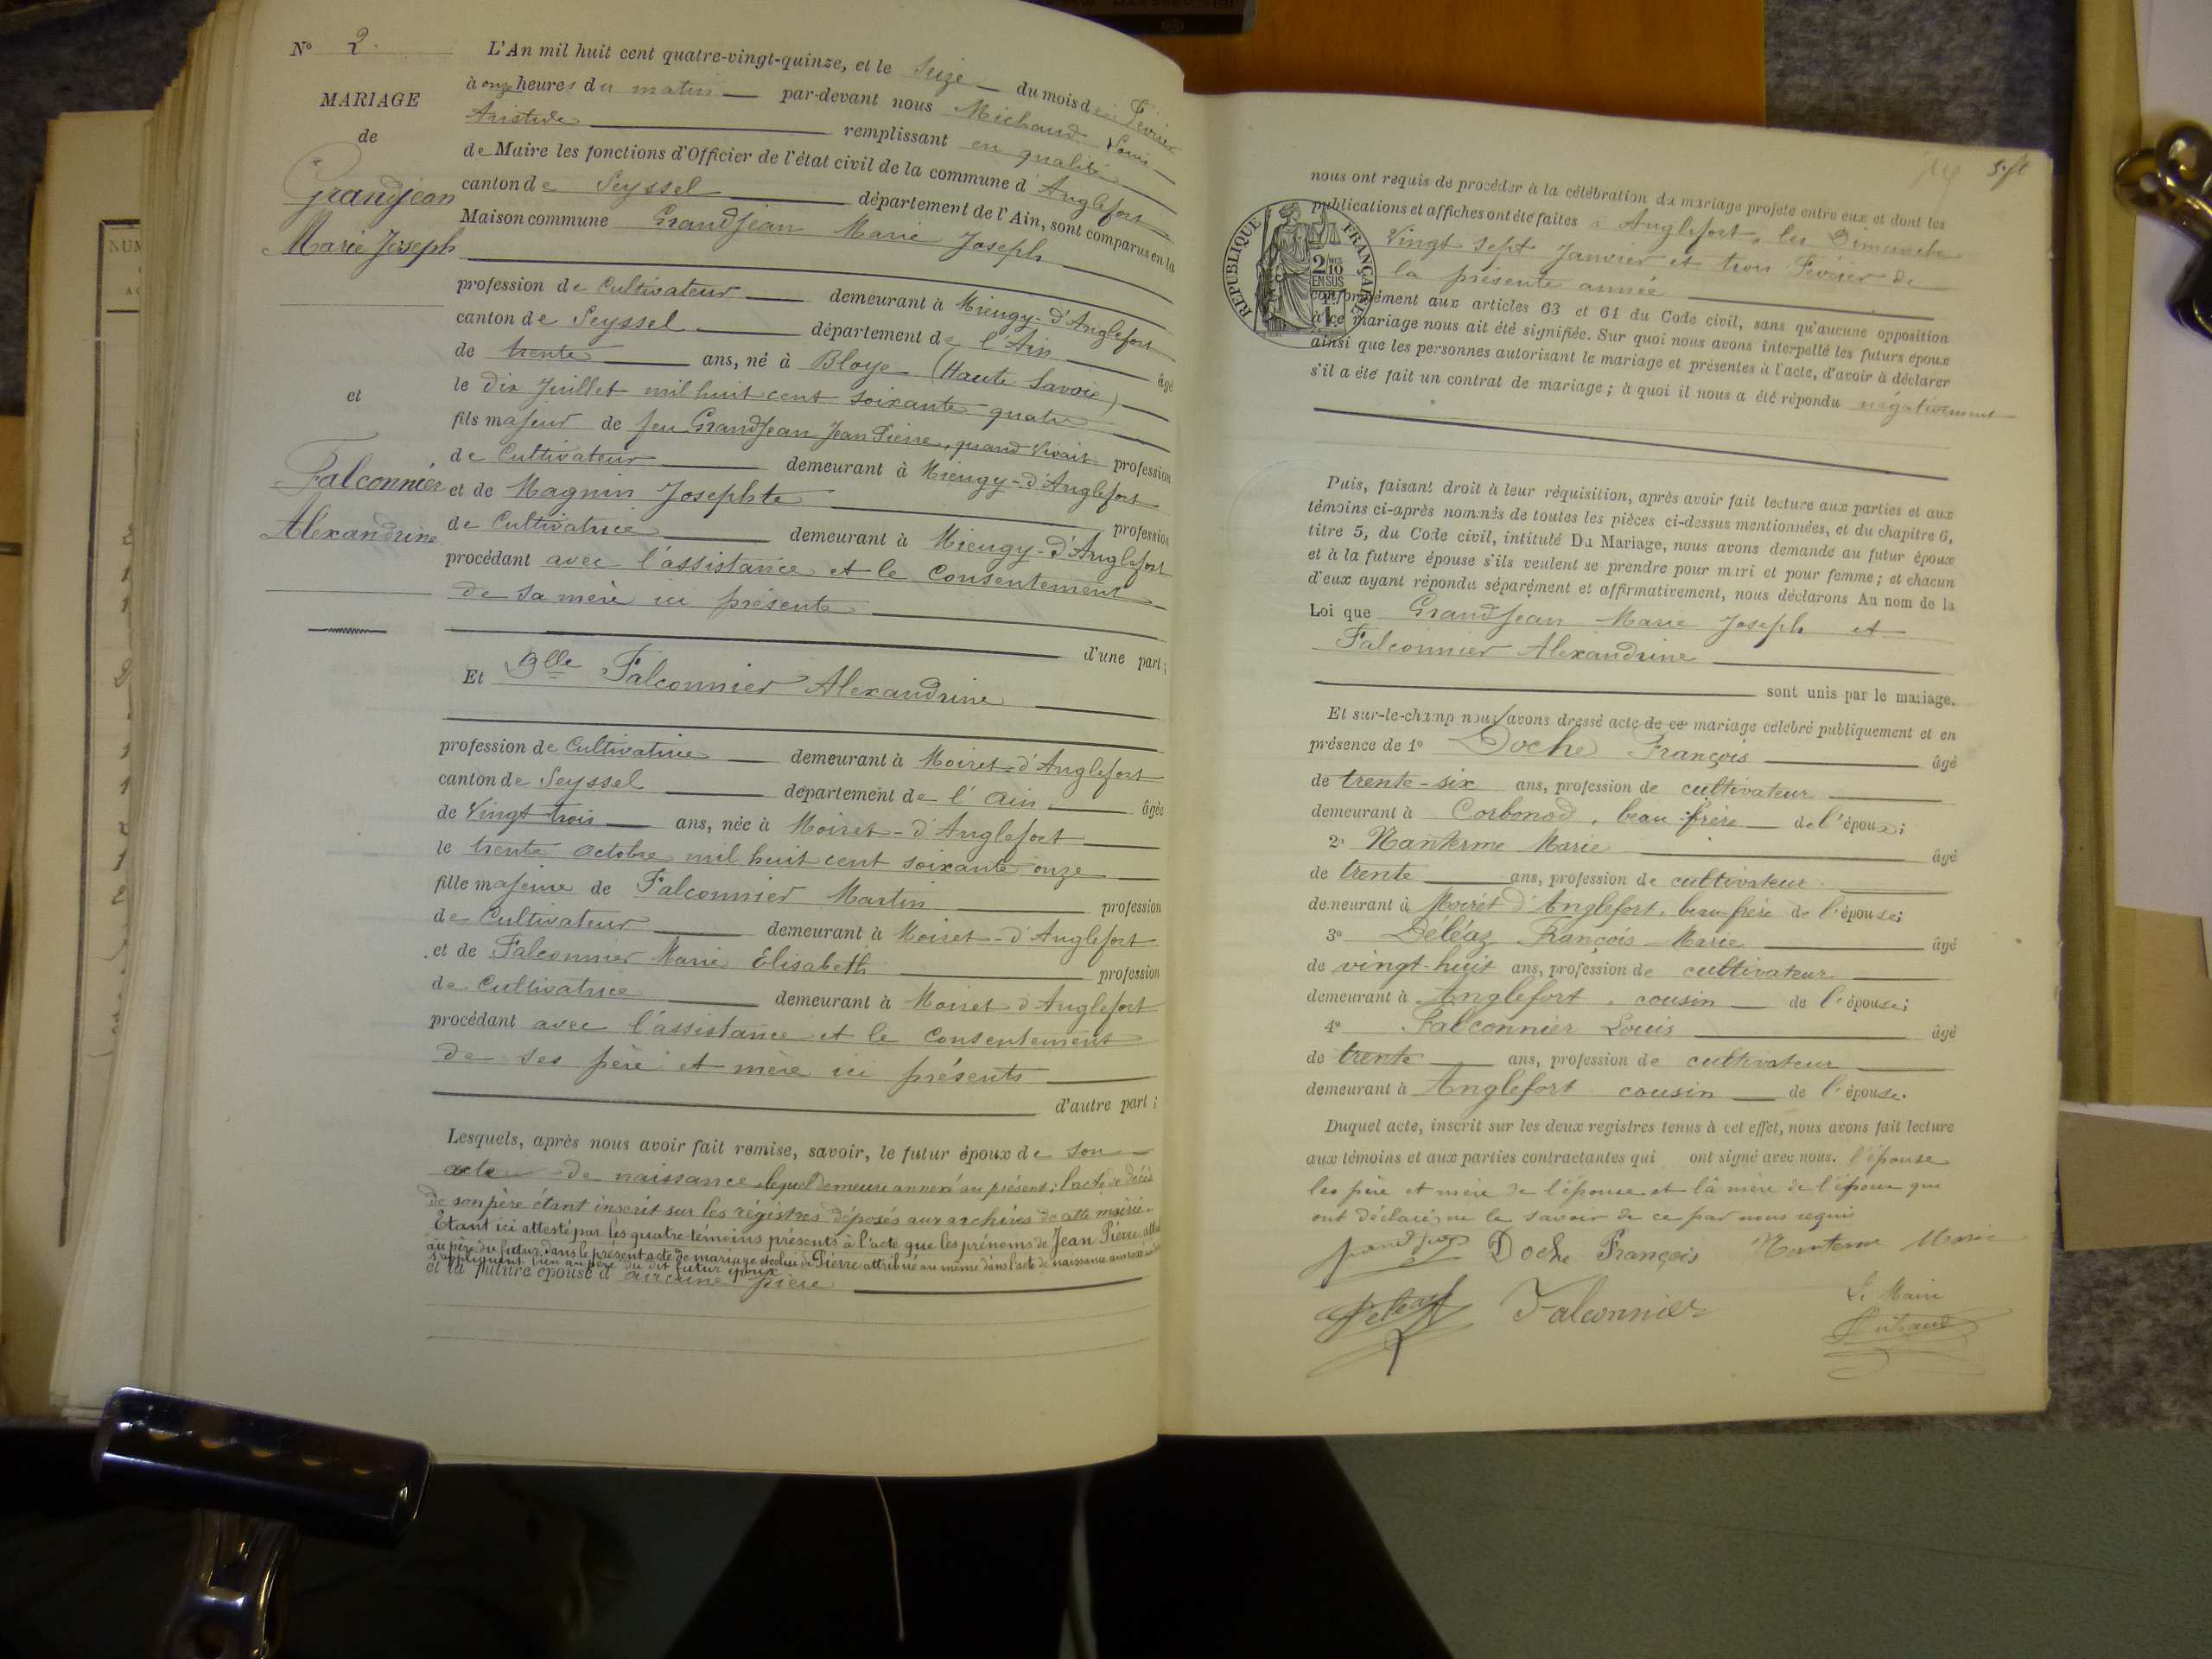 N° 2.
MARIAGE
de
Grandjean
Marie Joseph
et
Falconnier
Alexandrine
L'An mil huit cent quatre-vingt-quinze, et le Seize du mois de Février
à onze heures du matin par-devant nous Michaud Louis
Aristide remplissant en qualité
de Maire les fonctions d'Officier de l'état civil de la commune d'Anglefort
canton de Seyssel département de l'Ain, sont comparus en la
Maison commune Grandjean Marie Joseph
profession de Cultivateur demeurant à Mieugy-d'Anglefort
canton de Seyssel département de l'Ain âgé
de trente ans, né à Bloye (Haute Savoie)
le dix Juillet mil huit cent soixante quatre
fils majeur de feu Grandjean Jean Pierre, quand vivait profession
de Cultivateur demeurant à Mieugy-d'Anglefort
et de Magnin Josephte profession
de Cultivatrice demeurant à Mieugy-d'Anglefort
procédant avec l'assistance et le consentement
de sa mère ici présente
d'une part;
Et Dlle Falconnier Alexandrine
profession de Cultivatrice demeurant à Moiret-d'Anglefort
canton de Seyssel département de l'Ain âgée
de Vingt trois ans, née à Moiret-d'Anglefort
le trente Octobre mil huit cent soixante onze
fille majeure de Falconnier Martin profession
de Cultivateur demeurant à Moiret-d'Anglefort
et de Falconnier Marie Élisabeth profession
de Cultivatrice demeurant à Moiret d'Anglefort
procédant avec l'assistance et le consentement
de ses père et mère ici présents
d'autre part;
Lesquels, après nous avoir fait remise, savoir, le futur époux de son
acte de naissance, lequel demeure annexé au présent; l'acte de décès
de son père étant inscrit sur les régistres déposés aux archives de cette mairie.
Etant ici attesté par les quatre témoins présents à l'acte que les prénoms de Jean Pierre
au père du futur dans le présent acte de mariage et celui de Pierre attribué au même dans l'acte de naissance
s'appliquent bien au père du dit futur époux
et la future épouse d'aucune pièce
nous ont requis de procéder à la célébration du mariage projeté entre eux et dont les
publications et affiches ont été faites à Anglefort, les Dimanche
Vingt sept Janvier et trois Février de
la présente année
conformément aux articles 63 et 64 du Code civil, sans qu'aucune opposition
à ce mariage nous ait été signifiée. Sur quoi nous avons interpellé les futurs époux
ainsi que les personnes autorisant le mariage et présentes à l'acte, d'avoir à déclarer
s'il a été fait un contrat de mariage; à quoi il nous a été répondu négativement
RÉPUBLIQUE FRANÇAISE
2/10
EN SUS
Puis, faisant droit à leur réquisition, après avoir fait lecture aux parties et aux
témoins ci-après nommés de toutes les pièces ci-dessus mentionnées, et du chapitre 6,
titre 5, du Code civil, intitulé Du Mariage, nous avons demandé au futur époux
et à la future épouse s'ils veulent se prendre pour mari et pour femme; et chacun
d'eux ayant répondu séparément et affirmativement, nous déclarons Au nom de la
Loi que Grandjean Marie Joseph et
Falconnier Alexandrine
sont unis par le mariage.
Et sur-le-champ nous avons dressé acte de ce mariage célébré publiquement et en
présence de 1° Doche François âgé
de trente-six ans, profession de cultivateur
demeurant à Corbonod, beau-frère de l'époux;
2° Nanterme Marie âgé
de trente ans, profession de cultivateur
demeurant à Moirét d'Anglefort, beau-frère de l'épouse;
3° Déléaz François-Marie âgé
de vingt-huit ans, profession de cultivateur
demeurant à Anglefort, cousin de l'épouse;
4° Falconnier Louis âgé
de trente ans, profession de cultivateur
demeurant à Anglefort cousin de l'épouse.
Duquel acte, inscrit sur les deux registres tenus à cet effet, nous avons fait lecture
aux témoins et aux parties contractantes qui ont signé avec nous. l'épouse
les père et mère de l'épouse et la mère de l'époux qui
ont déclaré ne le savoir de ce par nous requis
Doche François Nanterme Marie
Falconnier
Le Maire